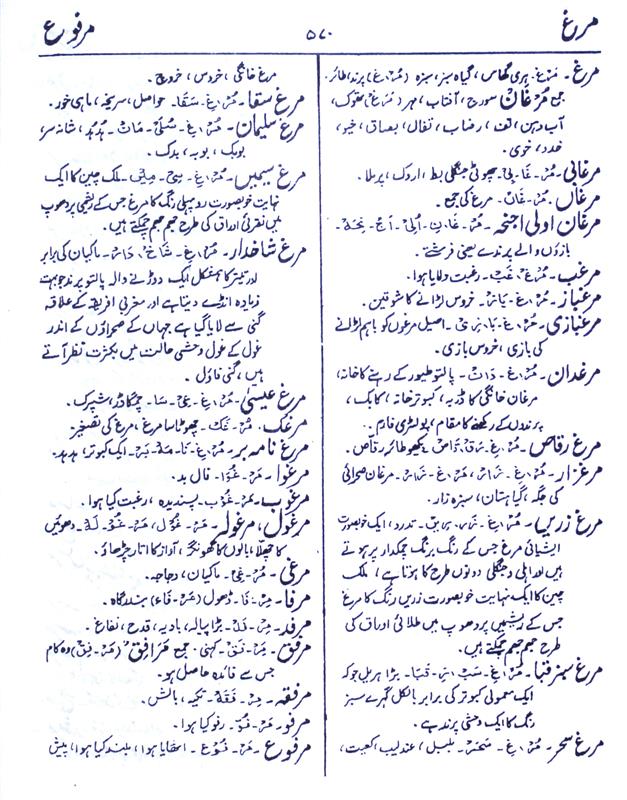 مرغ
۵۷۰
مرفوع
مرغ۔ مُرْغ۔ ہری گھاس، گیاہ سبز، سبزہ (مُرْغ) پرند، طائر۔
جمع مُرْغَان سورج، آفتاب، مہر (مَرْغ) تھوک،
آب دہن، تف، رضاب، تفال، بصاق، خیو،
خدد، خوی۔
مرغابی۔ مُرْ۔غَا۔بِیْ۔ چھوٹی جنگلی بط، اردک، پرملا۔
مرغاں۔ مُرْ۔غَانْ۔ مرغ کی جمع۔
مرغان اولی اجنحہ۔ مُرْ۔غَا۔نِ۔ اُلِیْ۔ اَجْ۔نِحَہْ۔
بازؤں والے پرندے یعنی فرشتے۔
مرغب۔ مُرَغْ۔غَبْ۔ رغبت دلایا ہوا۔
مرغباز۔ مُرْ۔غ۔بَازْ۔ خروس لڑانے کا شوقین۔
مرغبازی۔ مُرْ۔غ۔بَا۔زِیْ۔ اصیل مرغوں کو باہم لڑانے
کی بازی، خروس بازی۔
مرغدان۔ مُرْ۔غ۔دَانْ۔ پالتو طیور کے رہنے کا خانہ،
مرغان خانگی کا ڈربہ، کبوتر خانہ، کابک،
پرندوں کے رکھنے کا مقام، پولٹری فارم۔
مرغ رقاص۔ مُرْ۔غِ۔رَقْ۔قَاصْ۔ پکھو طائر رقاص۔
مرغزار۔ مُرْ۔غ۔زَارْ، مَرْ۔غ۔زَارْ۔ مرغان صحرائی
کی جگہ، گیاہستان، سبزہ زار۔
مرغ زریں۔ مُرْ۔غِ۔زَرْ۔رِیْں۔ تدرد، ایک خوبصورت
ایشیائی مرغ جس کے رنگ برنگ چمکدار پر ہوتے
ہیں اور اہلی و جنگلی دونوں طرح کا ہوتا ہے، ملک
چین کا ایک نہایت خوبصورت زریں رنگ کا مرغ
جس کے ریشمیں پر دھوپ میں طلائی اوراق کی
طرح جھم جھم چمکتے ہیں۔
مرغ سبز قبا۔ مُرْ۔غِ۔سَبْ۔زِ۔قَبَا۔ بڑا ہریل جو کہ
ایک معمولی کبوتر کی برابر بالکل گہرے سبز
رنگ کا ایک وحشی پرند ہے۔
مرغ سحر۔ مُرْ۔غِ۔سَحَرْ۔ بلبل، عندلیب، کعیت،
مرغ خانگی، خروس، خروچ۔
مرغ سقا۔ مُرْ۔غِ۔سَقَا۔ حواصل، سریخہ، ماہی خور۔
مرغ سلیمان۔ مُرْ۔غِ۔سُلَیْ۔مَانْ۔ ہُدہُد، شانہ سر،
بوبک، بوبہ، بدک۔
مرغ سیمیں۔ مُرْ۔غِ۔سِیْ۔مِیْں۔ ملک چین کا ایک
نہایت خوبصورت روپہلی رنگ کا مرغ جس کے پر دھوپ
میں نقرئی اوراق کی طرح جھم جھم چمکتے ہیں۔
مرغ شاخدار۔ مُرْ۔غِ۔شَاخْ۔دَارْ۔ ماکیان کی برابر
اور تیتر کا ہمشکل ایک دوڑنے والہ پالتو پرند جو بہت
زیادہ انڈے دیتا ہے اور مغربی افریقہ کے علاقہ
گنی سے لایا گیا ہے جہاں کے صحراؤں کے اندر
غول کے غول وحشی حالت میں بکثرت نظر آتے
ہیں، گنی فاؤل۔
مرغ عیسیٰ۔ مُرْ۔غِ۔عِیْ۔سَا۔ چمگادڑ، شپرک۔
مرغک۔ مُرْ۔غَکْ۔ چھوٹا سا مرغ، مرغ کی تصغیر۔
مرغ نامہ بر۔ مُرْ۔غِ۔نَا۔مَہْ۔بَرْ۔ ایک کبوتر، ہدہد۔
مرغوا۔ مَرْ۔غُوَا۔ فال بد۔
مرغوب۔ مَرْ۔غُوْب۔ پسندیدہ، رغبت کیا ہوا۔
مرغول، مرغولہ۔ مَرْ۔غُوْل، مَرْ۔غُوْ۔لَہْ۔ دھوئیں
کا چھلا، بالوں کا گھونگر، آواز کا اتار چڑھاؤ۔
مرغی۔ مُرْ۔غِیْ۔ ماکیان، دجاجہ۔
مرفا۔ مِرْ۔فَا۔ ڈھول (مَرْ۔فَاء) بندرگاہ۔
مرفد۔ مِرْ۔فَدْ۔ بڑا پیالہ، بادیہ، قدح، نفاغ۔
مرفق۔ مِرْ۔فَقْ۔ کہنی۔ جمع مَرَافِقْ (مَرْ۔فِقْ) وہ کام
جس سے فائدہ حاصل ہو۔
مرفقہ۔ مِرْ۔فَقَہْ۔ تکیہ، بالش۔
مرفو۔ مَرْ۔فُوّ۔ رفو کیا ہوا۔
مرفوع۔ مَرْ۔فُوْع۔ اٹھایا ہوا، بلند کیا ہوا، پیش